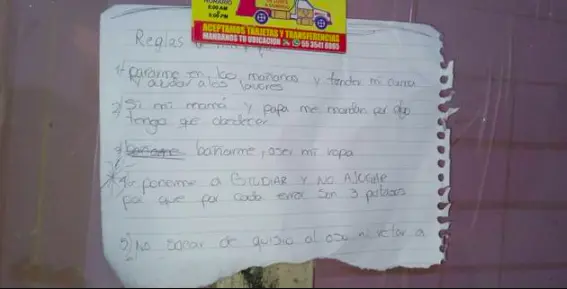 HORARIO
8:00 AM
A
6:00 PM
ACEPTAMOS TARJETAS Y TRANSFERENCIAS
MANDANOS TU UBICACION
Reglas
1- pararme en las mañanas y tender mi cama
y ayudar a los favores
2- Si mi mamá y papa me mandan por algo
tengo que obedecer
bañarme, aser mi ropa
ponerme a ESTUDIAR Y NO A JUGAR
por que por cada error son 3 patadas
5) No sacar de quisio al oso ni retar a